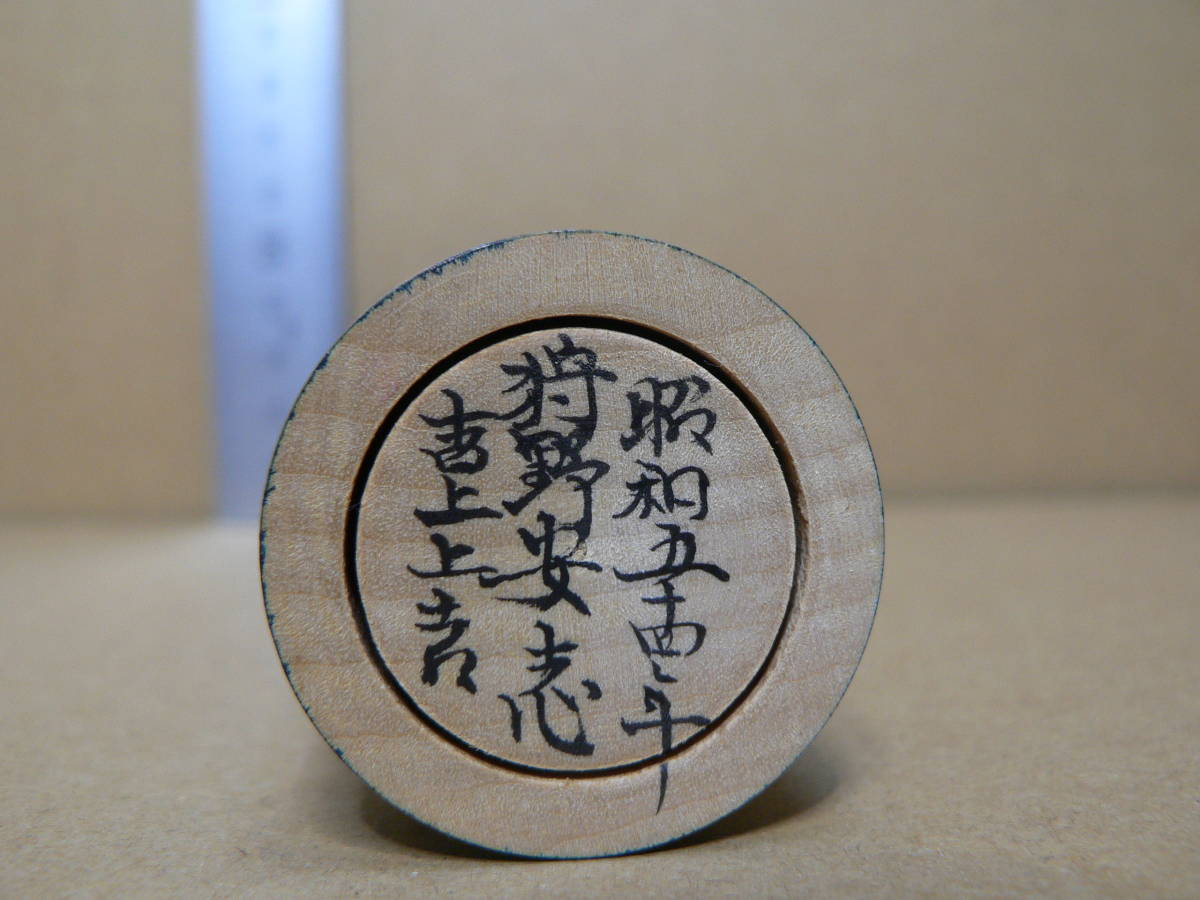 昭和五十四年
狩野安志
吉上上吉